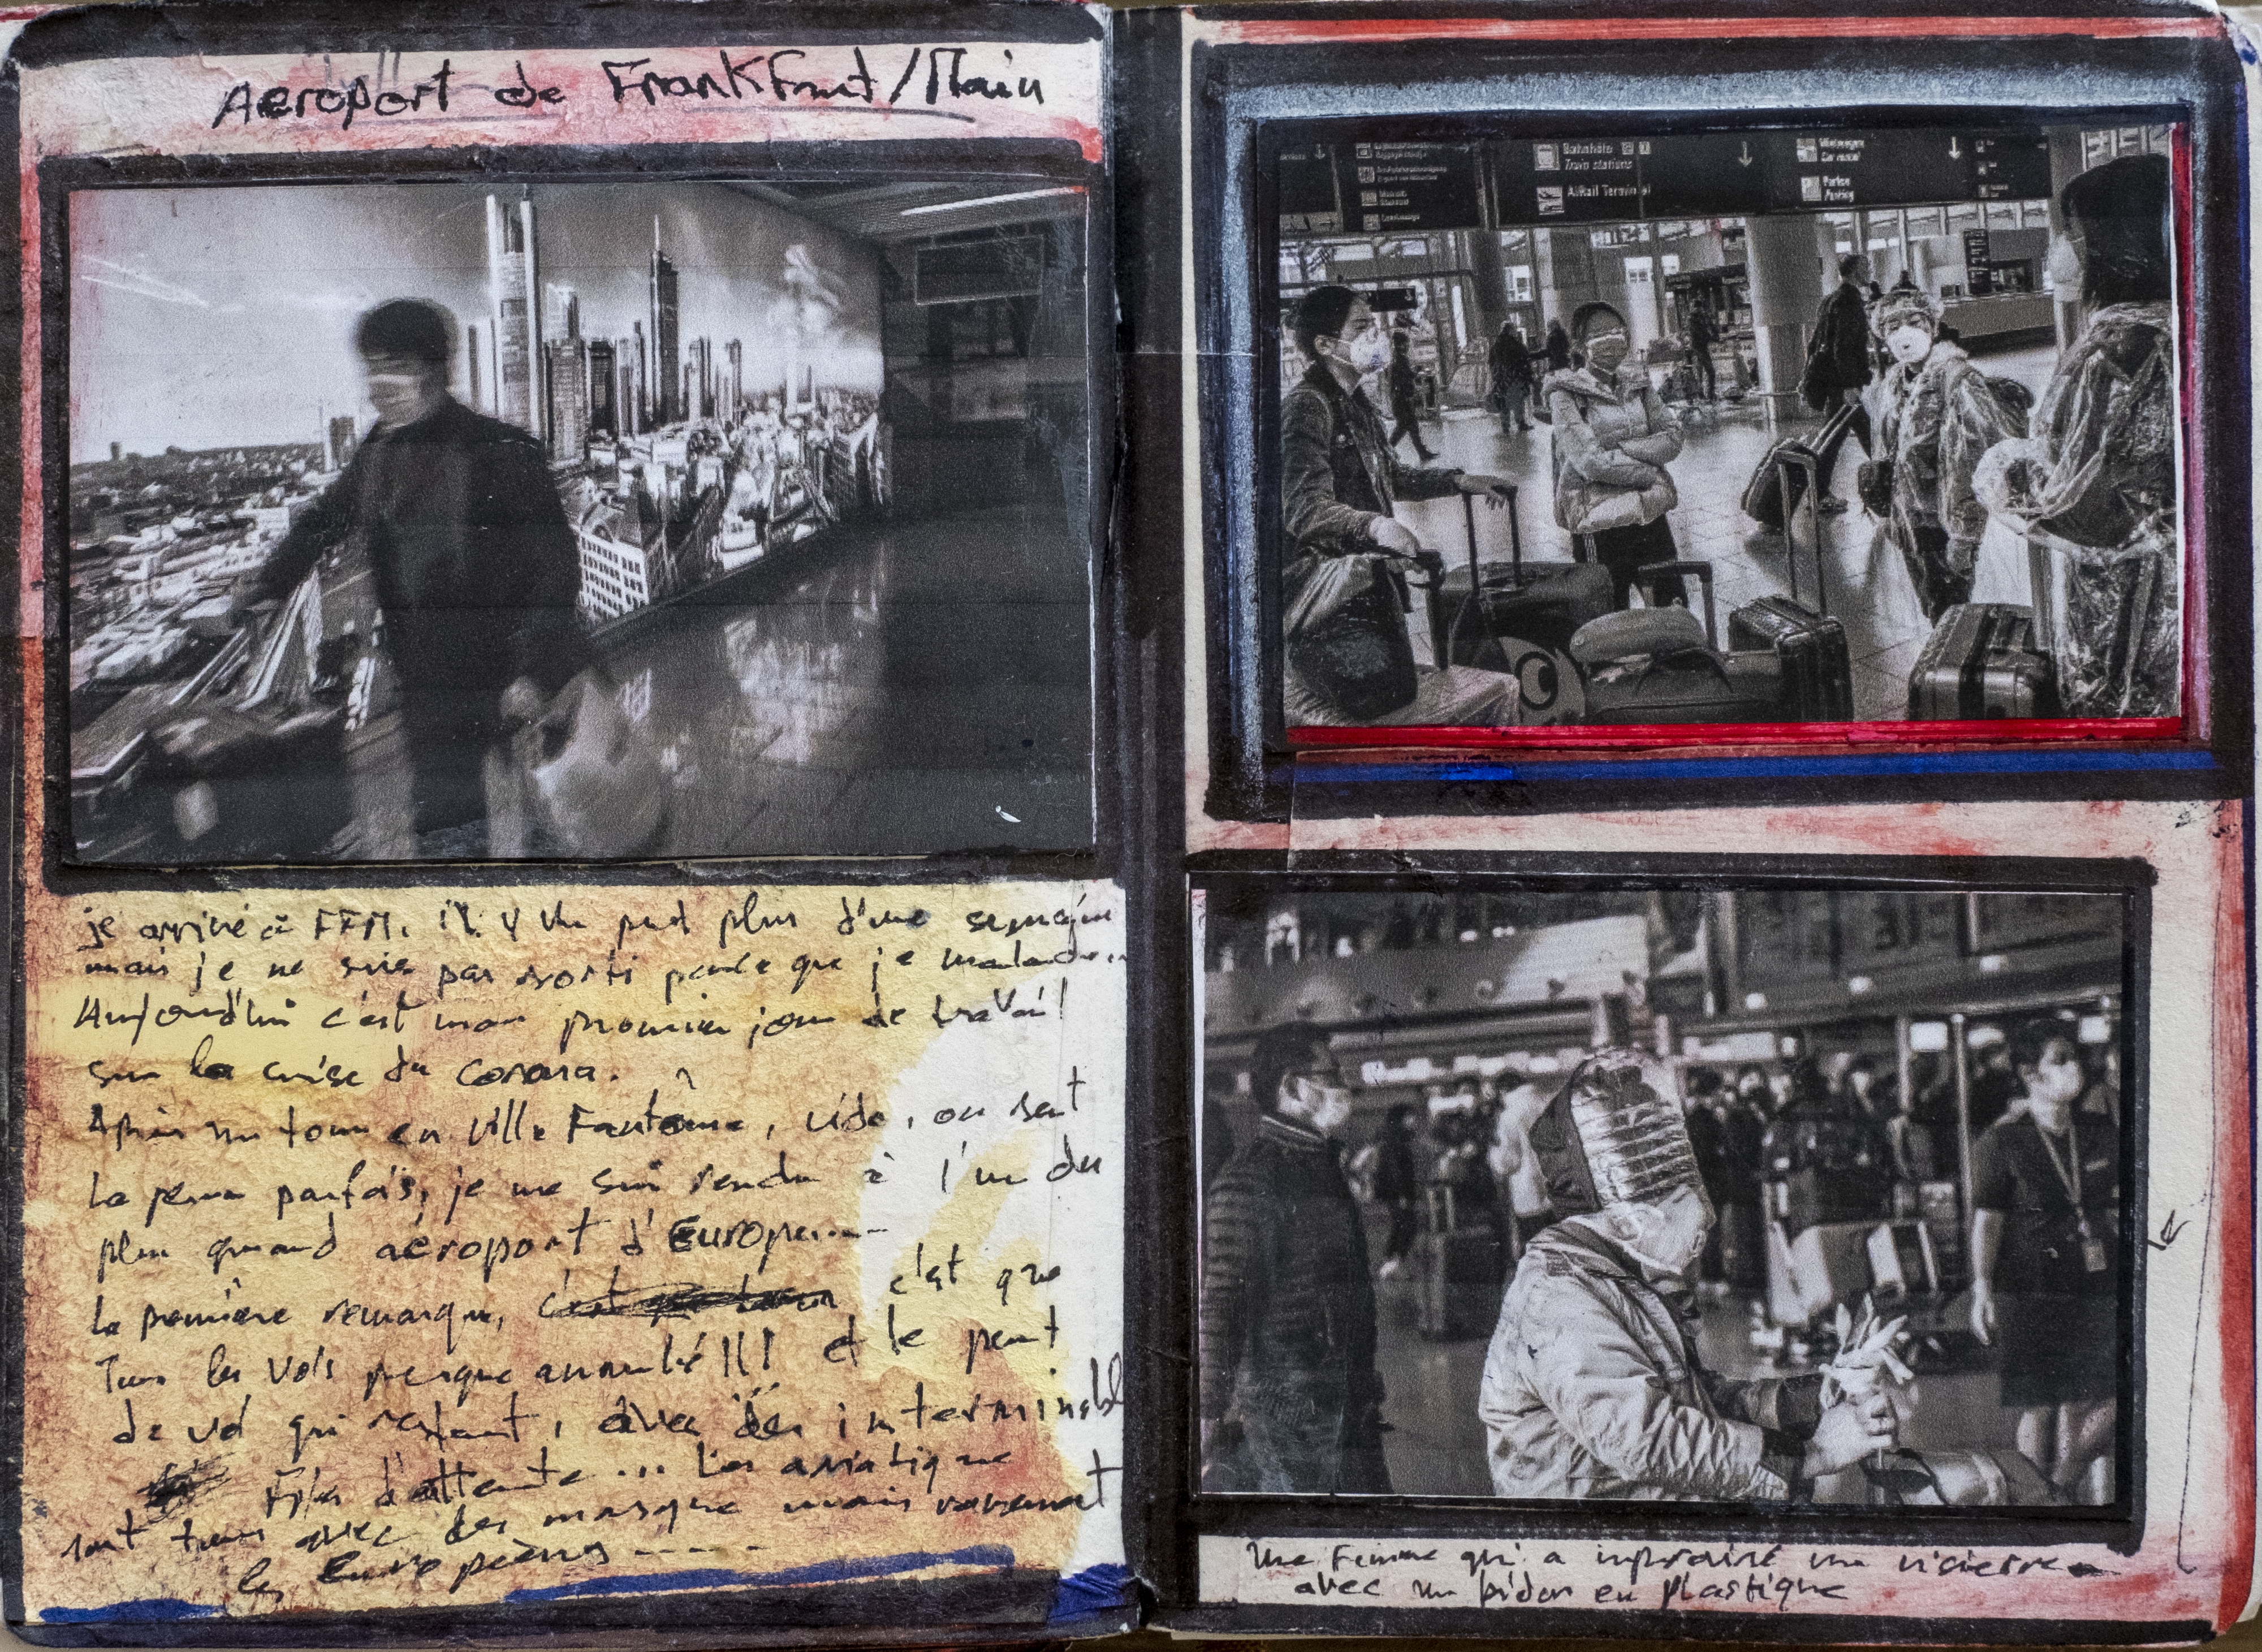 Aeroport de Frankfurt/Main
je arrivé à FFM. il y Un peut plus d'une semain
mais je ne suis pas sorti parce que je malade..
Aujourd'hui c'est mon premier jour de travail
sur la crise du corona.
Après un tour en ville Fantôme, vide, on sent
la peur parfois, je me suis rendu à l'un des
plus grand aéroport d'Europe....
la première remarque, c'est que
Tous les vols presque annulé!!! et le peut
de vol qui restent, avec des interminabl
Files d'attente... Les asiatique
sont tous avec des masque mais rarement
les Européens .....
Bahnhöfe
Train stations
AIRail Terminal
Mietwagen
Car rental
Parken
Parking
Une Femme qui a improvisé une visierre
avec un bidon en plastique